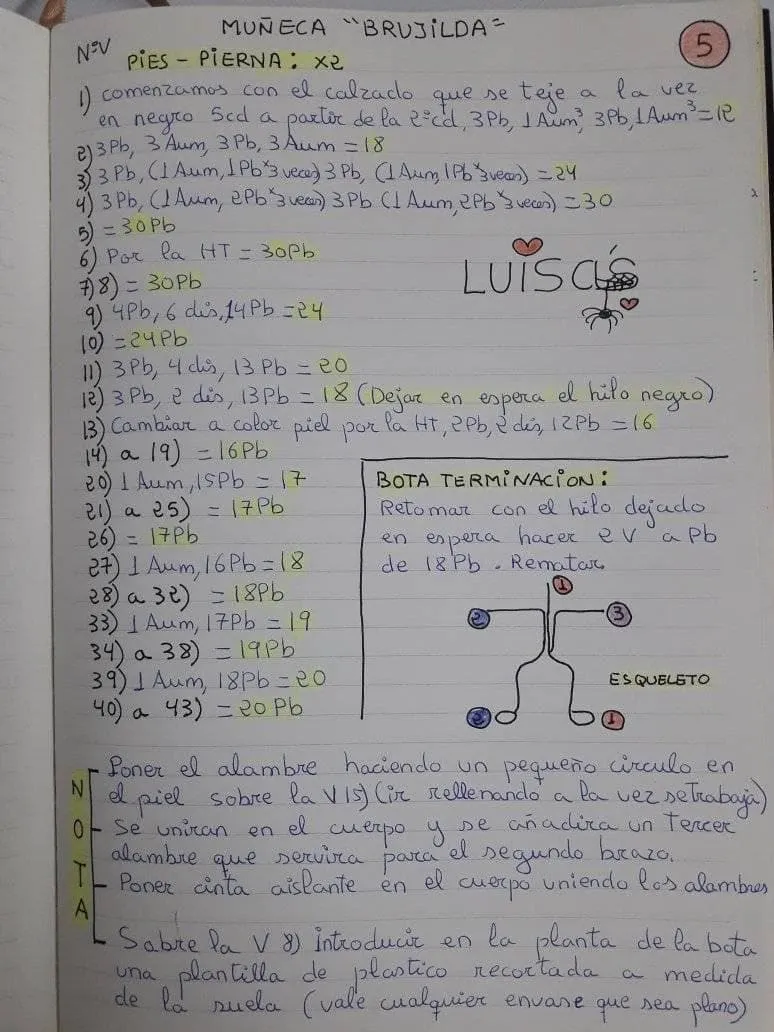 MUÑECA "BRUJILDA"
5
NºV
PIES - PIERNA: x2
1) comenzamos con el calzado que se teje a la vez
en negro 5cd a partir de la 2ºcd, 3Pb, 1Aum³, 3Pb, 1Aum³=12
2) 3Pb, 3Aum, 3Pb, 3Aum = 18
3) 3Pb, (1Aum, 1Pb x 3 veces) 3Pb, (1Aum, 1Pb x 3 veces) = 24
4) 3Pb, (1Aum, 2Pb x 3 veces) 3Pb (1Aum, 2Pb x 3 veces) = 30
5) = 30Pb
6) Por la HT = 30Pb
7) 8) = 30Pb
9) 4Pb, 6 dis, 14Pb = 24
10) = 24Pb
11) 3Pb, 4 dis, 13Pb = 20
12) 3Pb, 2 dis, 13Pb = 18 (Dejar en espera el hilo negro)
13) Cambiar a color piel por la HT, 2Pb, 2 dis, 12Pb = 16
14) a 19) = 16Pb
20) 1Aum, 15Pb = 17
21) a 25) = 17Pb
26) = 17Pb
27) 1Aum, 16Pb = 18
28) a 32) = 18Pb
33) 1Aum, 17Pb = 19
34) a 38) = 19Pb
39) 1Aum, 18Pb = 20
40) a 43) = 20Pb
LUISCLÍS
BOTA TERMINACION:
Retomar con el hilo dejado
en espera hacer 2 V a Pb
de 18Pb. Rematar
1
2
3
ESQUELETO
2
1
NOTA
Poner el alambre haciendo un pequeño circulo en
el piel sobre la V15) (ir rellenando a la vez se trabaja)
Se uniran en el cuerpo y se añadira un Tercer
alambre que servira para el segundo brazo.
Poner cinta aislante en el cuerpo uniendo los alambres
Sobre la V 8) introducir en la planta de la bota
una plantilla de plastico recortada a medida
de la suela (vale cualquier envase que sea plano)